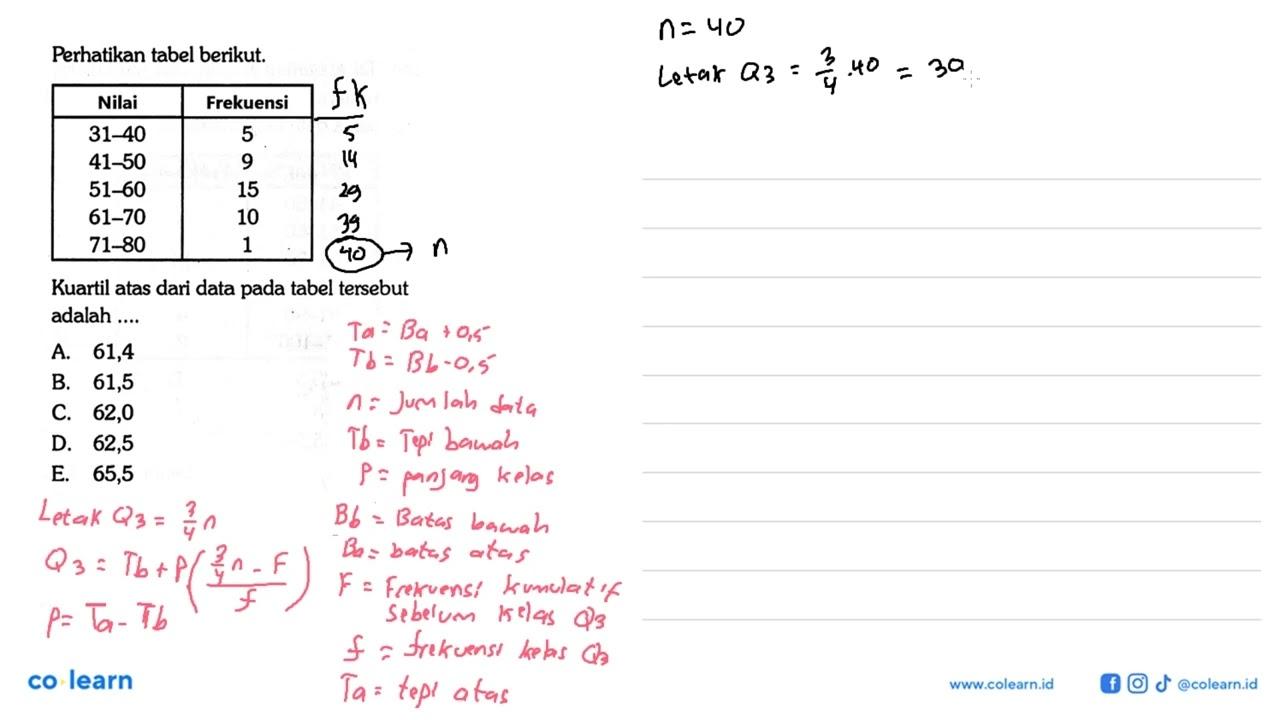 Perhatikan tabel berikut.
Nilai Frekuensi fk
31–40 5 5
41–50 9 14
51–60 15 29
61–70 10 39
71–80 1 40 → n
Kuartil atas dari data pada tabel tersebut
adalah ....
A. 61,4
B. 61,5
C. 62,0
D. 62,5
E. 65,5
Letak Q3 = 3/4 n
Q3 = Tb + P ( (3/4 n - F) / f )
P = Ta - Tb
Ta = Ba + 0,5
Tb = Bb - 0,5
n = Jumlah data
Tb = Tepi bawah
P = panjang kelas
Bb = Batas bawah
Ba = batas atas
F = Frekuensi kumulatif
sebelum kelas Q3
f = frekuensi kelas Q3
Ta = tepi atas
n = 40
Letak Q3 = 3/4 . 40 = 30
co learn
www.colearn.id
@colearn.id